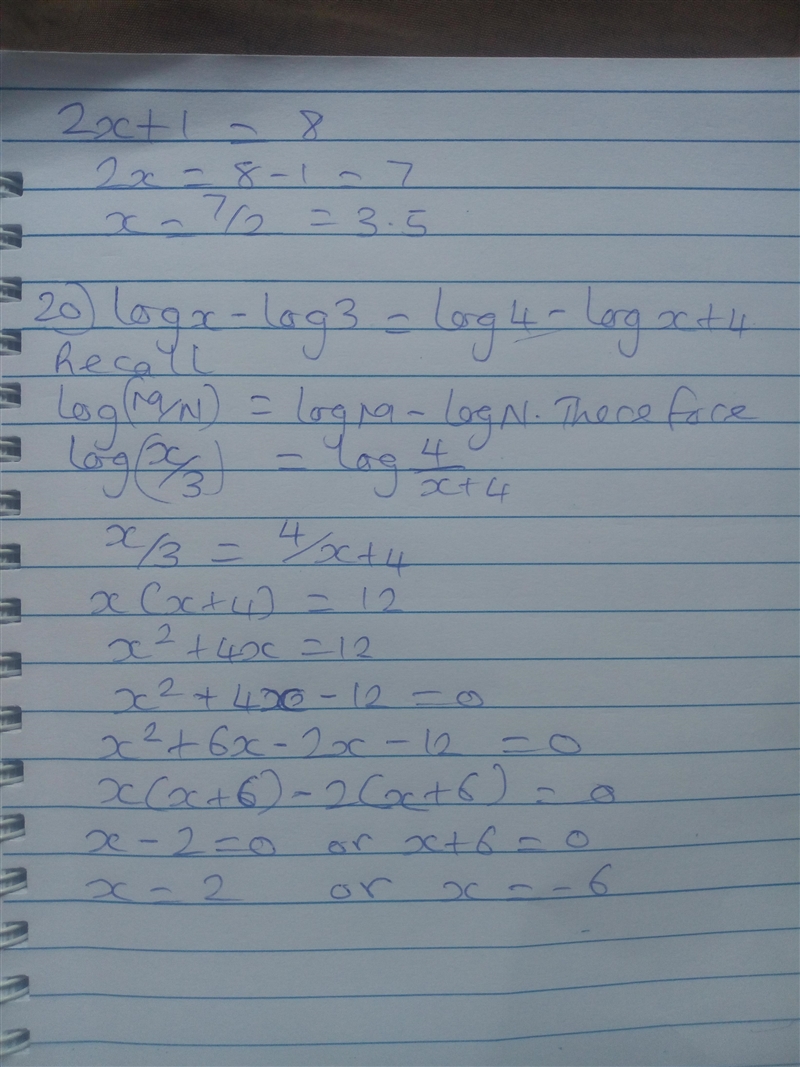 2x+1 = 8
2x = 8-1 = 7
x = 7/2 = 3.5
20) log x - log 3 = log 4 - log x+4
Recall
log(M/N) = log M - log N. Therefore
log(x/3) = log 4/x+4
x/3 = 4/x+4
x(x+4) = 12
x² + 4x = 12
x² + 4x - 12 = 0
x² + 6x - 2x - 12 = 0
x(x+6) - 2(x+6) = 0
x - 2 = 0 or x+6 = 0
x = 2 or x = -6